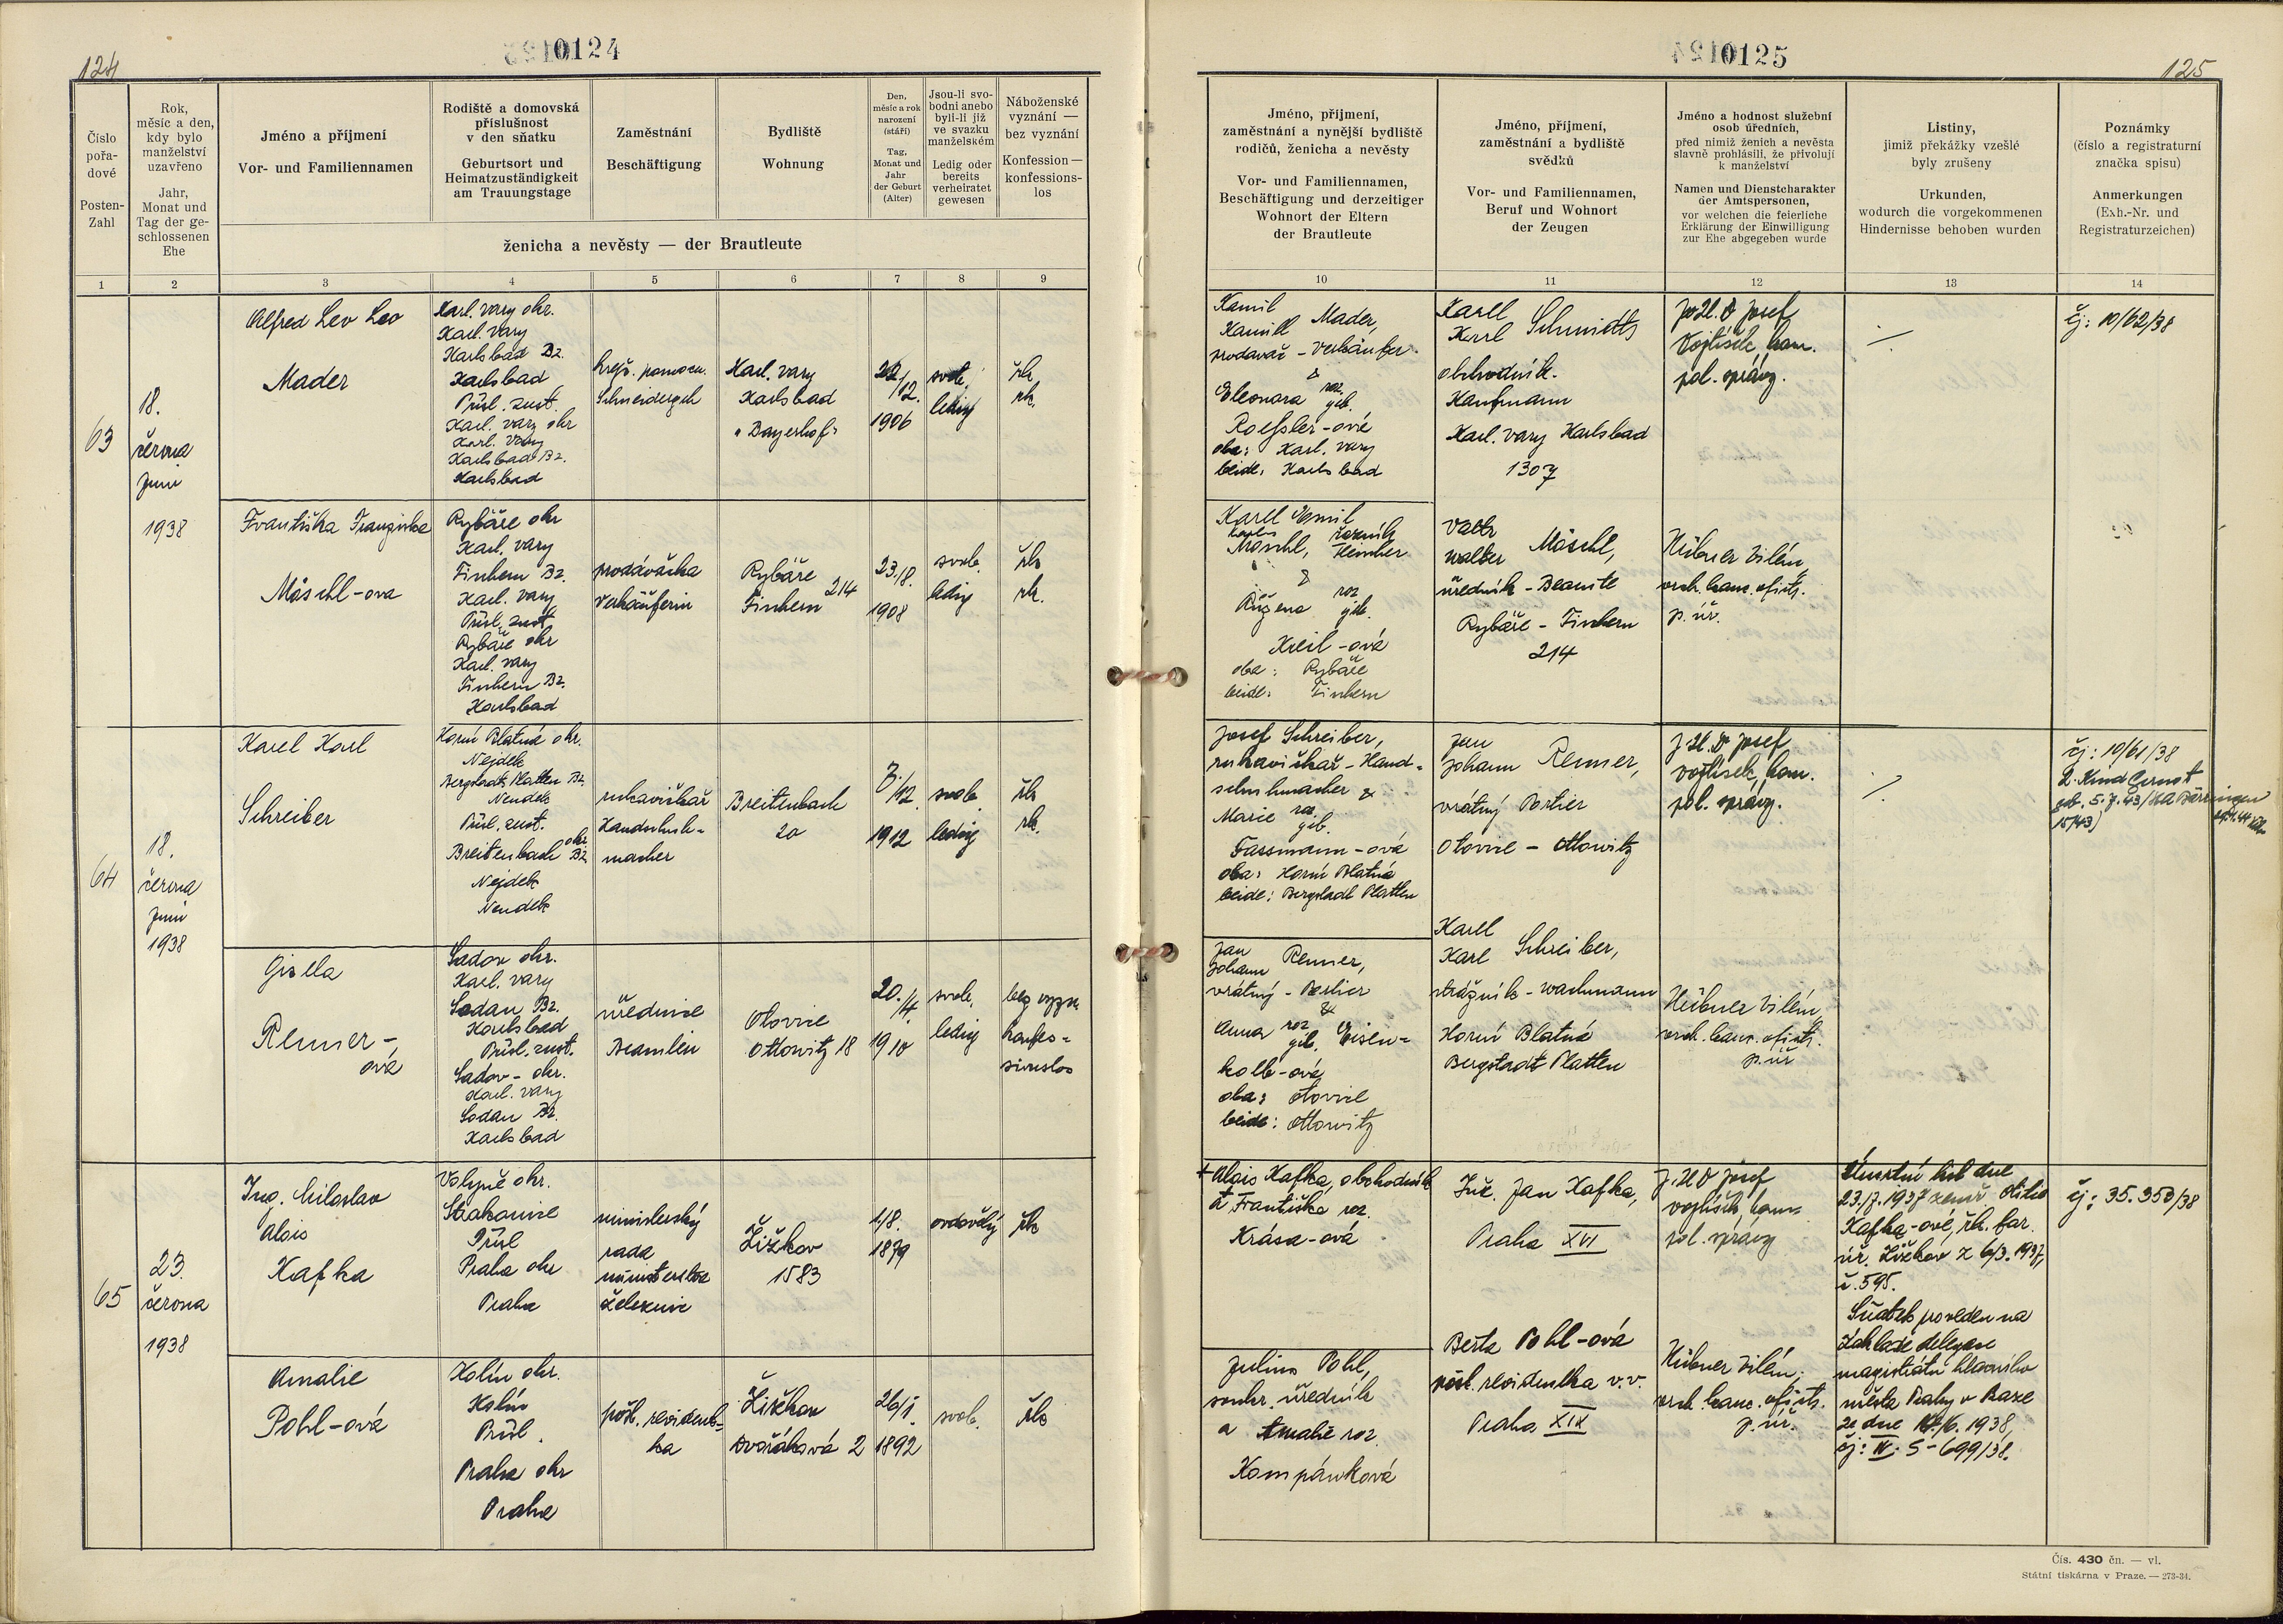 124
0124
Číslo pořadové
Posten-Zahl
Rok, měsíc a den, kdy bylo manželství uzavřeno
Jahr, Monat und Tag der geschlossenen Ehe
Jméno a příjmení
Vor- und Familiennamen
Rodiště a domovská příslušnost v den sňatku
Geburtsort und Heimatzuständigkeit am Trauungstage
Zaměstnání
Beschäftigung
Bydliště
Wohnung
Den, měsíc a rok narození (stáří)
Tag, Monat und Jahr der Geburt (Alter)
Jsou-li svobodni anebo byli-li již ve svazku manželském
Ledig oder bereits verheiratet gewesen
Náboženské vyznání — bez vyznání
Konfession — konfessionslos
ženicha a nevěsty — der Brautleute
1 2 3 4 5 6 7 8 9
63
18.
června
Juni
1938
Alfred Lev Leo
Mader
Karl. vary okr.
Karl. vary
Karlsbad Bz.
Karlsbad
Přísl. zust.
Karl. vary okr
Karl. vary
Karlsbad Bz.
Karlsbad
krejč. pomocn.
Schneidergeh
Karl. vary
Karlsbad
"Bayerhof"
22/12.
1906
svob.
ledig
řk
rk.
Františka Franziska
Möschl-ova
Rybáře okr
Karl. vary
Fischern Bz.
Karl. vary
Přísl. zust.
Rybáře okr
Karl. vary
Fischern Bz.
Karlsbad
prodavačka
Verkäuferin
Rybáře
Fischern 214
23./8.
1908
svob.
ledig
řk
rk.
64
18.
června
Juni
1938
Karel Karl
Schreiber
Horní Blatná okr.
Nejdek
Bergstadt Platten Bz.
Neudek
Přísl. zust.
Breitenbach okr. Bz
Nejdek
Neudek
rukavičkář
Handschuh-
macher
Breitenbach
20
7./12.
1912
svob.
ledig
řk
rk.
Gisela
Renner-
ová
Sadov okr.
Karl. vary
Sodau Bz.
Karlsbad
Přísl. zust.
Sadov - okr.
Karl. vary
Sodau Bz.
Karlsbad
úřednice
Beamtin
Otovice
Ottowitz 18
20./4.
1910
svob.
ledig
bez vyzn.
konfes-
sionslos
65
23.
června
1938
Ing. Miloslav
Alois
Kafka
Volyně okr.
Strakonice
Přísl
Praha okr
Praha
ministerský
rada
ministerstva
železnic
Žižkov
1583
1/8.
1879
ovdovělý
řk
Amalie
Pohl-ová
Kolín okr.
Kolín
Přísl.
Praha okr
Praha
pošt. revident-
ka
Žižkov
Dvořákova 2
26/1.
1892
svob.
řk
0125
125
Jméno, příjmení, zaměstnání a nynější bydliště rodičů, ženicha a nevěsty
Vor- und Familiennamen, Beschäftigung und derzeitiger Wohnort der Eltern der Brautleute
Jméno, příjmení, zaměstnání a bydliště svědků
Vor- und Familiennamen, Beruf und Wohnort der Zeugen
Jméno a hodnost služební osob úředních, před nimiž ženich a nevěsta slavně prohlásili, že přivolují k manželství
Namen und Dienstcharakter der Amtspersonen, vor welchen die feierliche Erklärung der Einwilligung zur Ehe abgegeben wurde
Listiny, jimiž překážky vzešlé byly zrušeny
Urkunden, wodurch die vorgekommenen Hindernisse behoben wurden
Poznámky (číslo a registraturní značka spisu)
Anmerkungen (Exh.-Nr. und Registraturzeichen)
10 11 12 13 14
Kamil
Kamill Mader,
prodavač - Verkäufer
&
Eleonora roz. geb.
Roessler-ové
oba: Karl. vary
beide: Karlsbad
Karel
Karl Schmidts
obchodník.
Kaufmann
Karl. vary Karlsbad
1307
JUDr Josef
Vojtíšek, kom.
pol. správy.
čj: 10/62/38
Karel Emil
Karl Möschl, řezník Fleischer
&
Růžena roz geb.
Kreil-ová
oba: Rybáře
beide: Fischern
Valtr
Walter Möschl,
úředník - Beamte
Rybáře - Fischern
214
Hübner Vilém,
vrch. kanc. ofici.
p. úř.
Josef Schreiber,
rukavičkář - Hand-
schuhmacher &
Marie roz. geb.
Fassmann-ová
oba: Horní Blatná
beide: Bergstadt Platten
Jan
Johann Renner,
vrátný Portier
Otovice - Ottowitz
JUDr Josef
Vojtíšek, kom.
pol. správy.
čj: 10/61/38
2. Kind Gernot
geb. 5.7.43/StA Bärringen
15/43)
Jan
Johann Renner,
vrátný - Portier
&
Anna roz geb. Eisen-
kolb-ová
oba: Otovice
beide: Ottowitz
Karel
Karl Schreiber,
strážník - Wachmann
Horní Blatná
Bergstadt Platten
Hübner Vilém,
vrch. kanc. ofici.
p. úř
+ Alois Kafka, obchodník
a Františka roz.
Krása-ová
Inž. Jan Kafka,
Praha XVI
JUDr Josef
Vojtíšek, kom.
pol. správy
Úmrtní list dne
23./7. 1937 zemř. Otilie
Kafka-ové, řk. far.
úř. Žižkov z 6/3. 1937,
č. 595.
Sňatek proveden na
základě delegace
magistrátu hlavního
města Prahy v Praze
ze dne 14./6. 1938,
čj: IV. 5-699/38.
čj: 35.350/38
Julius Pohl,
soukr. úředník
a Amalie roz.
Kompánková
Berta Pohl-ová
pošt. revidentka v.v.
Praha XIX
Hübner Vilém,
vrch. kanc. ofici.
p. úř.
Čís. 430 čn. — vl.
Státní tiskárna v Praze. — 273-34.